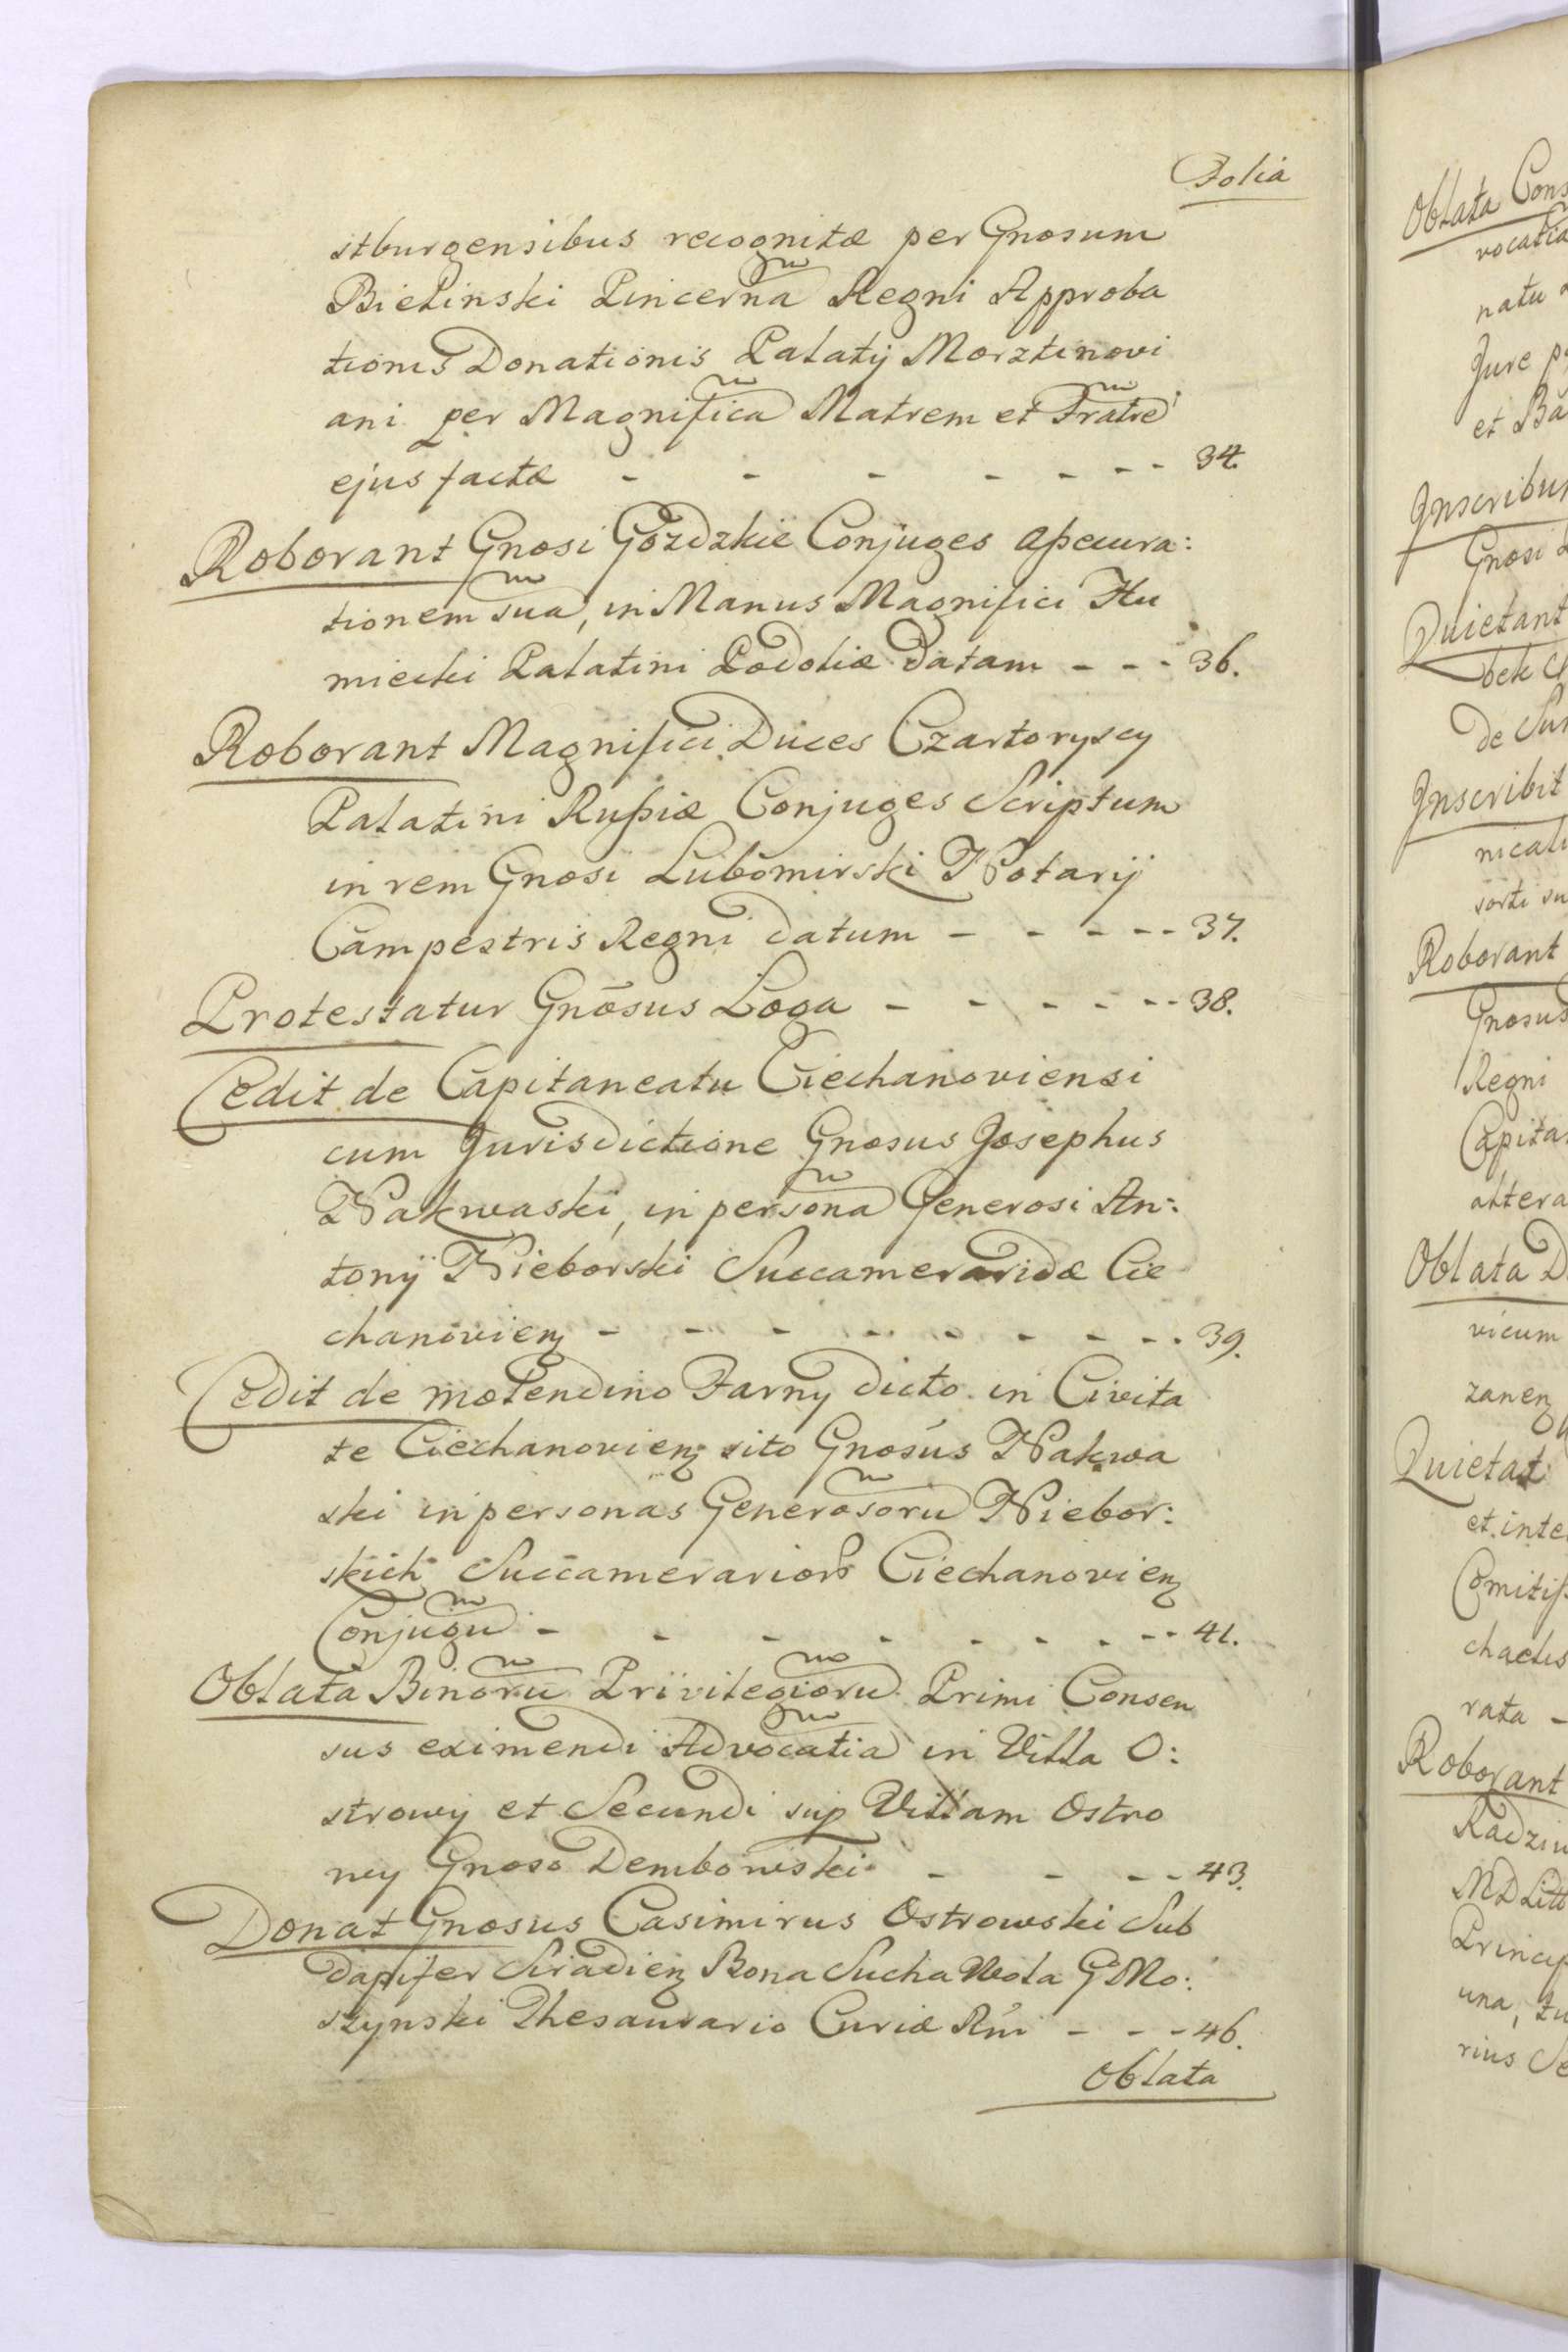 Folia
stburgensibus recognitæ per Gnosum
Bielinski Pincernã Regni Approba
tionis Donationis Palatij Morztinovi
ani per Magnificã Matrem et Fratrẽ
ejus factæ - - - - - - - 34.
Roborant Gnosi Gozdzkie Conjuges Aßecura:
tionem suã, in Manus Magnifici Hu
miecki Palatini Podoliæ datam - - - 36.
Roborant Magnifici Duces Czartoryscy
Palatini Rußiæ Conjuges Scriptum
in rem Gnosi Lubomirski Notarij
Campestris Regni datum - - - - - 37.
Protestatur Gnõsus Loga - - - - - - 38.
Cedit de Capitaneatu Ciechanoviensi
cum Jurisdictione Gnosus Josephus
Nakwaski, in personã Generosi An:
tonij Nieborski Succameraridæ Cie
chanovienz - - - - - - - - - 39.
Cedit de molendino Farny dicto in Civita
te Ciechanovienz sito Gnosus Nakwa
ski in personas Generosorũ Niebor:
skich Succamerarior Ciechanovienz
Conjugũ - - - - - - - - - 41.
Oblata Binorũ Privilegiorũ Primi Consen
sus eximendi Advocatiã in Villa O:
strowy et Secundi sup Villam Ostro
wy Gnoso Dembowski - - - - 43.
Donat Gnosus Casimirus Ostrowski Sub
dapifer Siradienz Bona Sucha Wola G Mo:
szynski Thesaurario Curiæ Rni - - - 46.
Oblata
Oblata Cons
natu
Jure
et
Inscribun
Gnosi
Quietant
de Sum
Inscribit
Roborant
Gnosus
Regni
Capita
altera
Oblata D
vicum
zanenz
Quietat
et inte
Comitiß
rata -
Roborant
Radziw
MD Litt
Princip
una,
rius Se